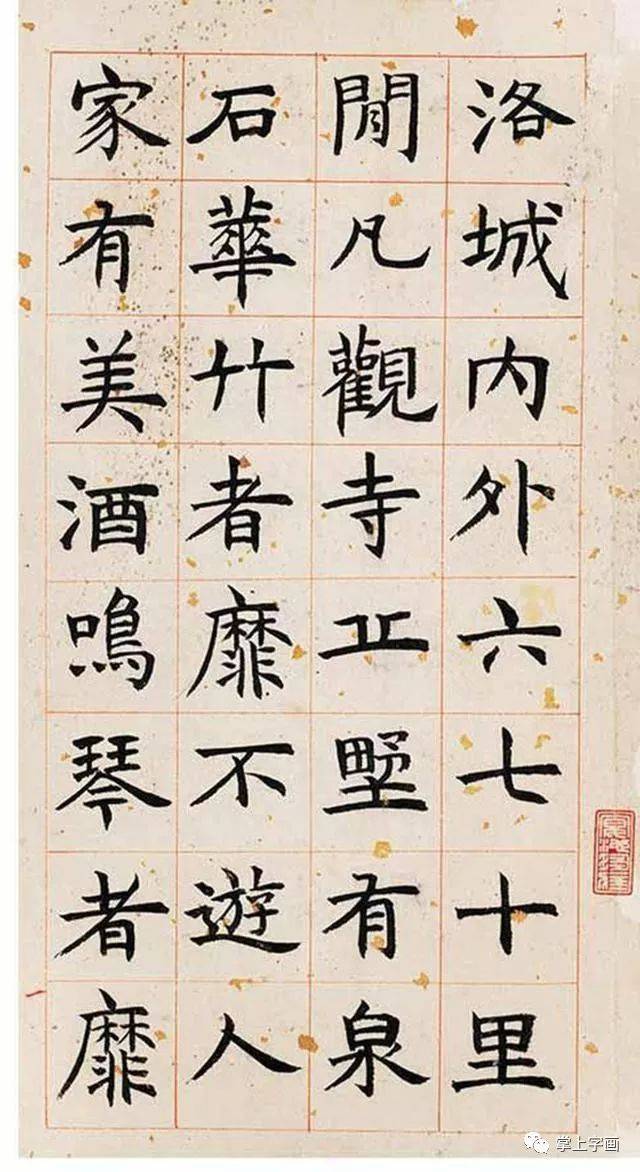 洛城內外六七十里
閒凡觀寺丠墅有泉
石華竹者靡不遊人
家有美酒鳴琴者靡
掌上字画